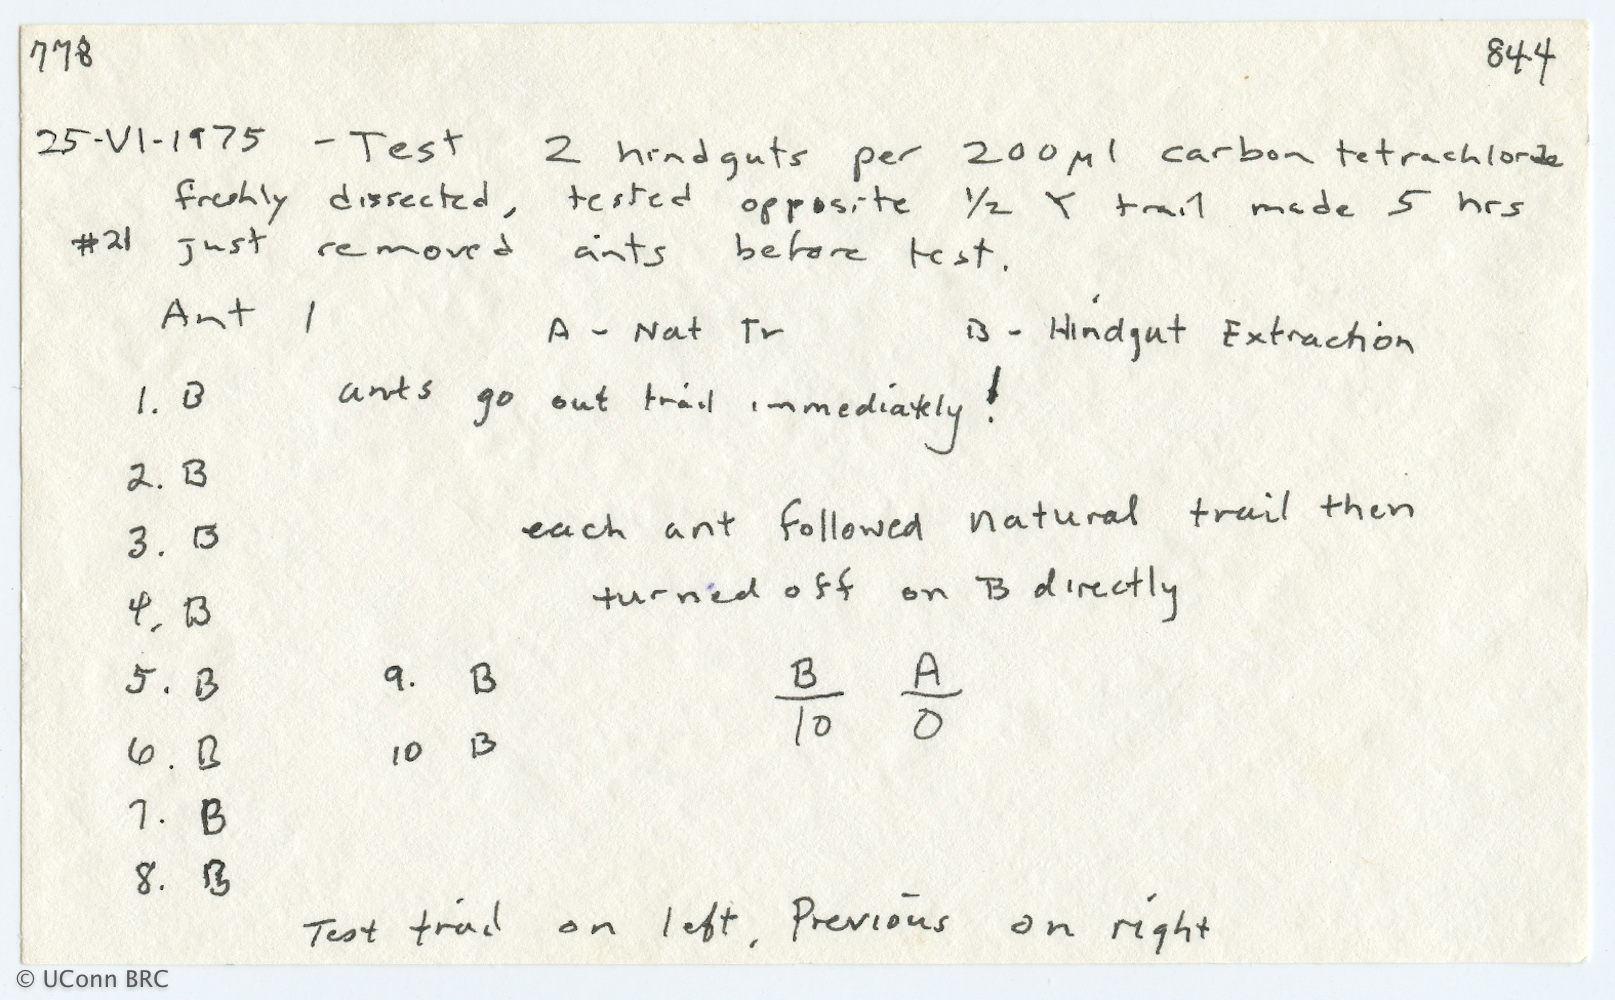 778 844
25-VI-1975 - Test 2 hindguts per 200 µl carbon tetrachloride
freshly dissected, tested opposite 1/2 Y trail made 5 hrs
#21 just removed ants before test.
Ant 1 A - Nat Tr B - Hindgut Extraction
1. B ants go out trail immediately!
2. B
each ant followed natural trail then
3. B
turned off on B directly
4. B
5. B 9. B B/10 A/0
6. B 10 B
7. B
8. B
Test trail on left, Previous on right
© UConn BRC